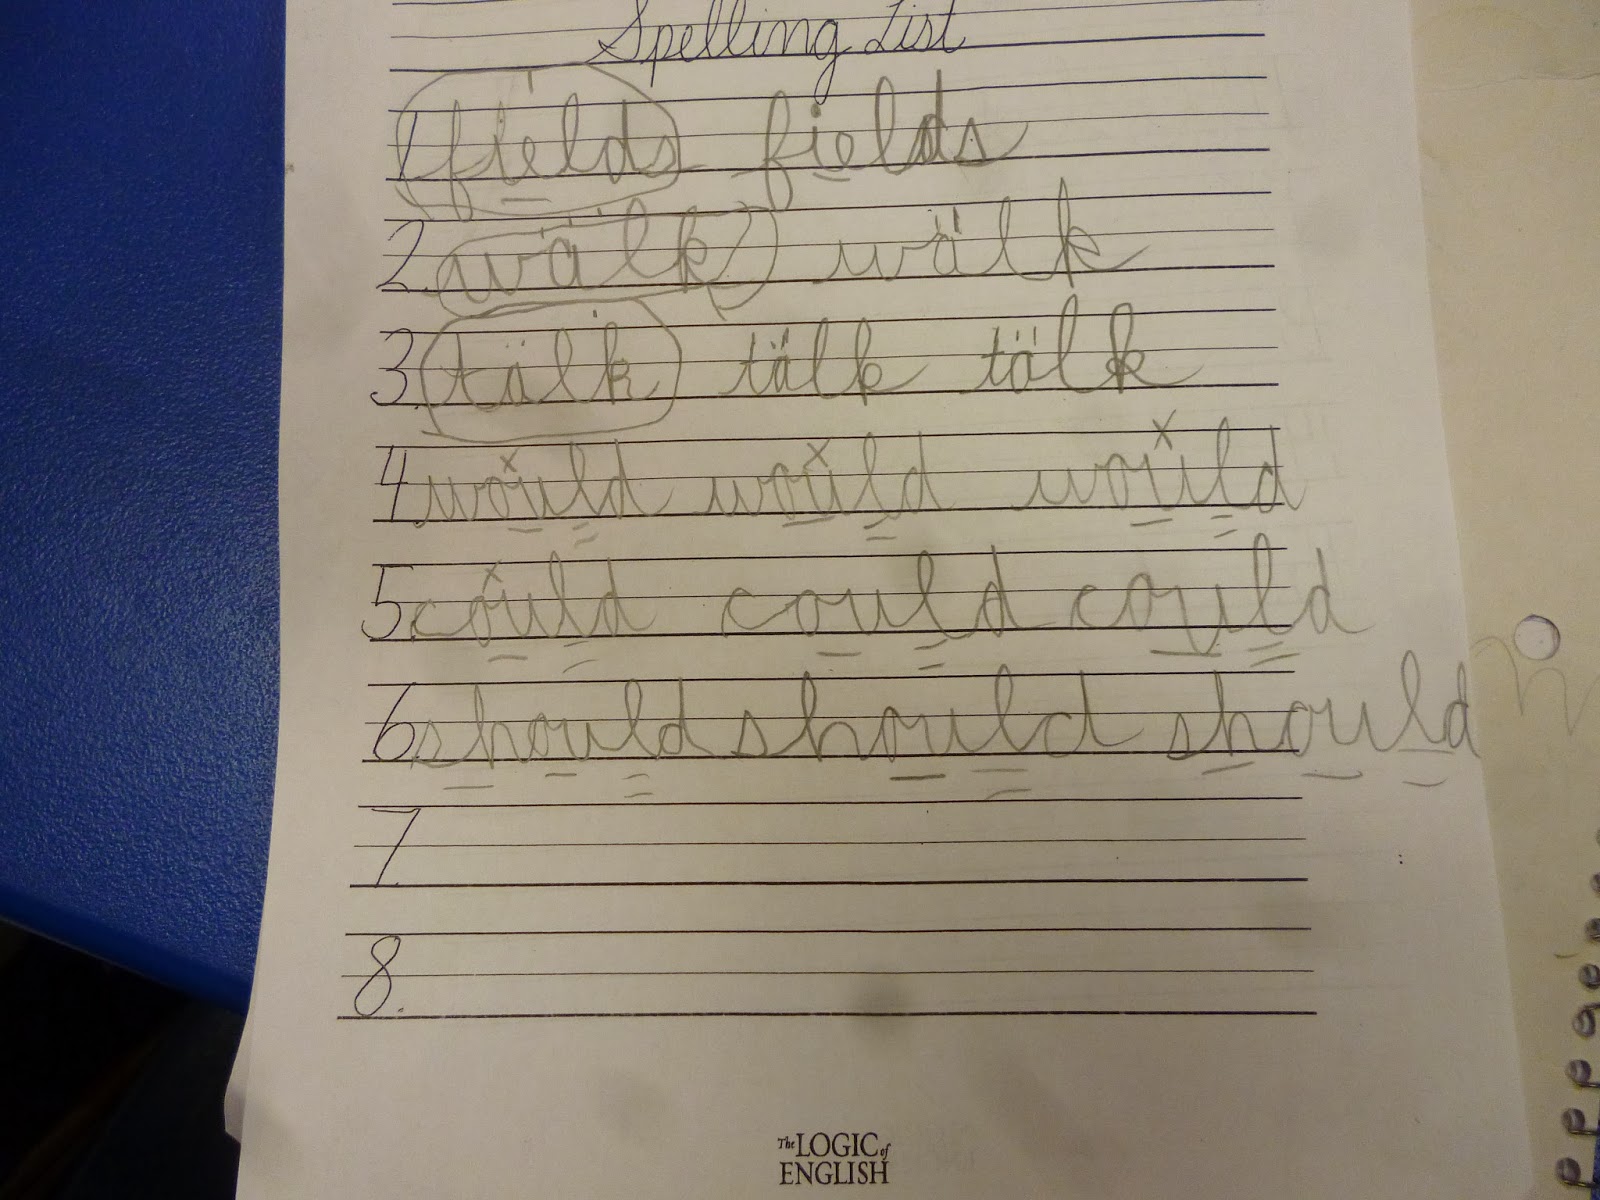 Spelling List
1 fields fields
2. wälk wälk
3. tälk tälk tälk
4. would would would
5. could could could
6. should should should
7.
8.
The LOGIC of
ENGLISH